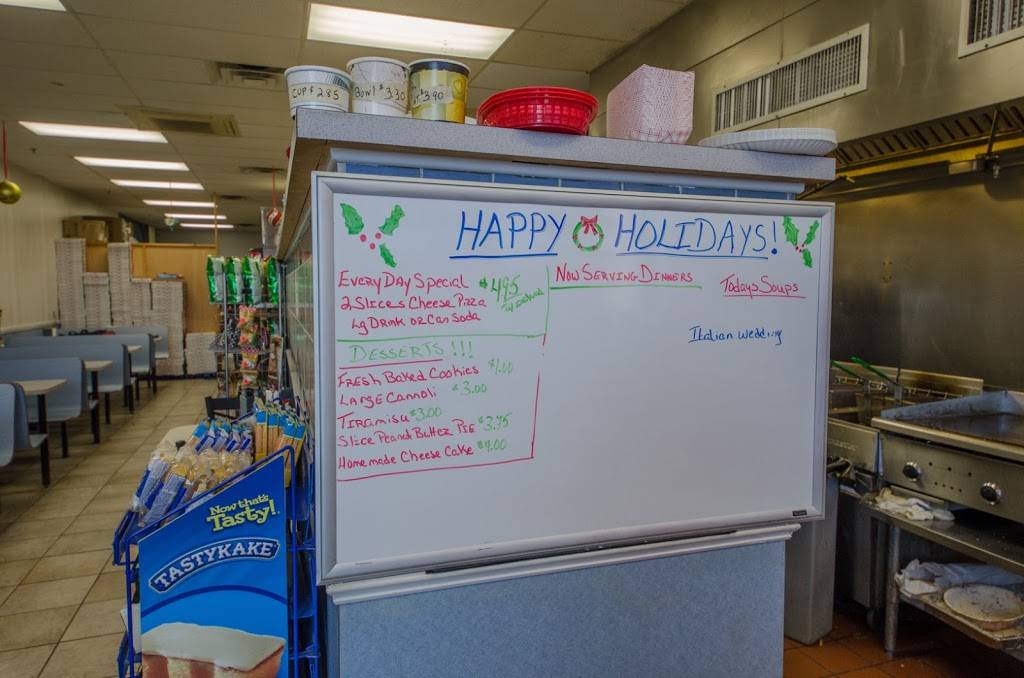 CUP $2.85
Bowl $3.30
$3.90
HAPPY HOLIDAYS!
EVERY DAY SPECIAL $4.95
2 SLICES CHEESE PIZZA
Lg DRINK or CAN SODA
DESSERTS!!!
FRESH BAKED COOKIES $1.00
LARGE CANNOLI $3.00
TIRAMISU $3.00
SLICE PEANUT BUTTER PIE $3.75
HOMEMADE CHEESE CAKE $4.00
NOW SERVING DINNERS
TODAYS SOUPS
Italian Wedding
Now that's
Tasty!
TASTYKAKE